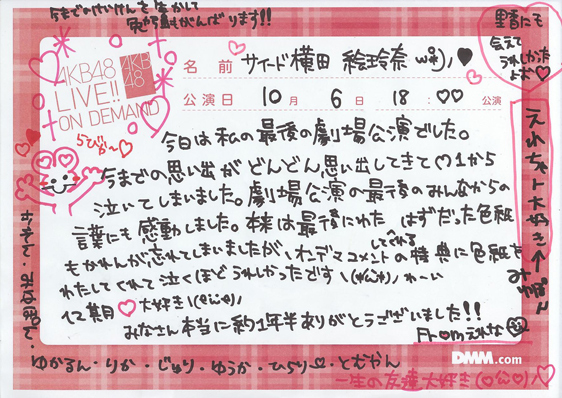 今までのけいけんを生かして
勉強もがんばります!!
里香にも
会えて
うれしかった
よむ♡
AKB48
LIVE!!
ON DEMAND
AKB
48
名前 サイード横田 絵玲奈
公演日 10月 6日 18:00 公演
らびか〜♡
今日は私の最後の劇場公演でした。
今までの思い出がどんどん思い出してきて♡1から
泣いてしまいました。劇場公演の最後のみんなからの
言葉にも感動しました。本来は最後にわた はずだった色紙
もかれんが忘れてしまいましたが \オンデマコメントの特典に色紙を
してくれる
わたしてくれて泣くほどうれしかったです
わーい
12期♡大好き
みなさん本当に約1年半ありがとうございました!!
Fromえれな
えれちゃん大好き↑
みゆぽん
かれん・みなぽん・
ゆかるん・りか・じゅり・ゆうか・ひらり・ともやん
DMM.com
一生の友達大好き